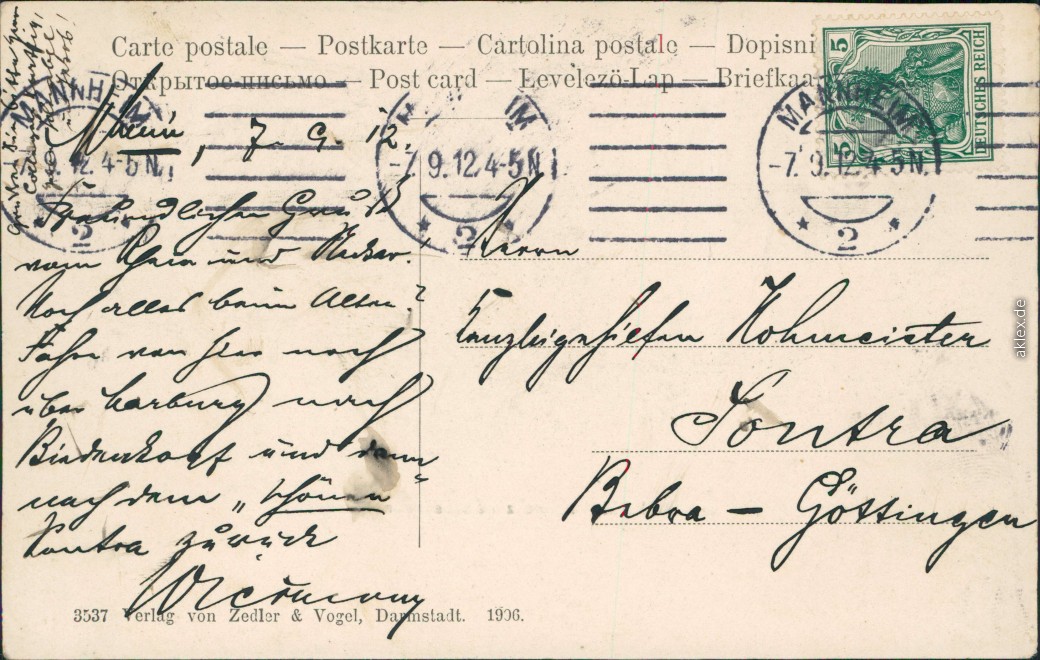 Carte postale — Postkarte — Cartolina postale — Dopisni
Открытое письмо — Post card — Levelezö-Lap — Briefkaa
5
5
DEUTSCHES REICH
MANNHEIM
-7.9.12.4-5N.
2
MANNHEIM
-7.9.12.4-5N.
2
MANNHEIM
-7.9.12.4-5N.
2
Mheim, 7. 9. 12.
Freundlichen Gruß
vom Rhein und Neckar.
Noch alles beim Alten?
Fahre von hier nach
über Marburg nach
Biedenkopf und dann
nach dem „schönen"
Sontra zurück
Herrn
Kanzleigehilfen Hohmeister
Sontra
Bebra — Göttingen
3537 Verlag von Zedler & Vogel, Darmstadt. 1906.
aklex.de